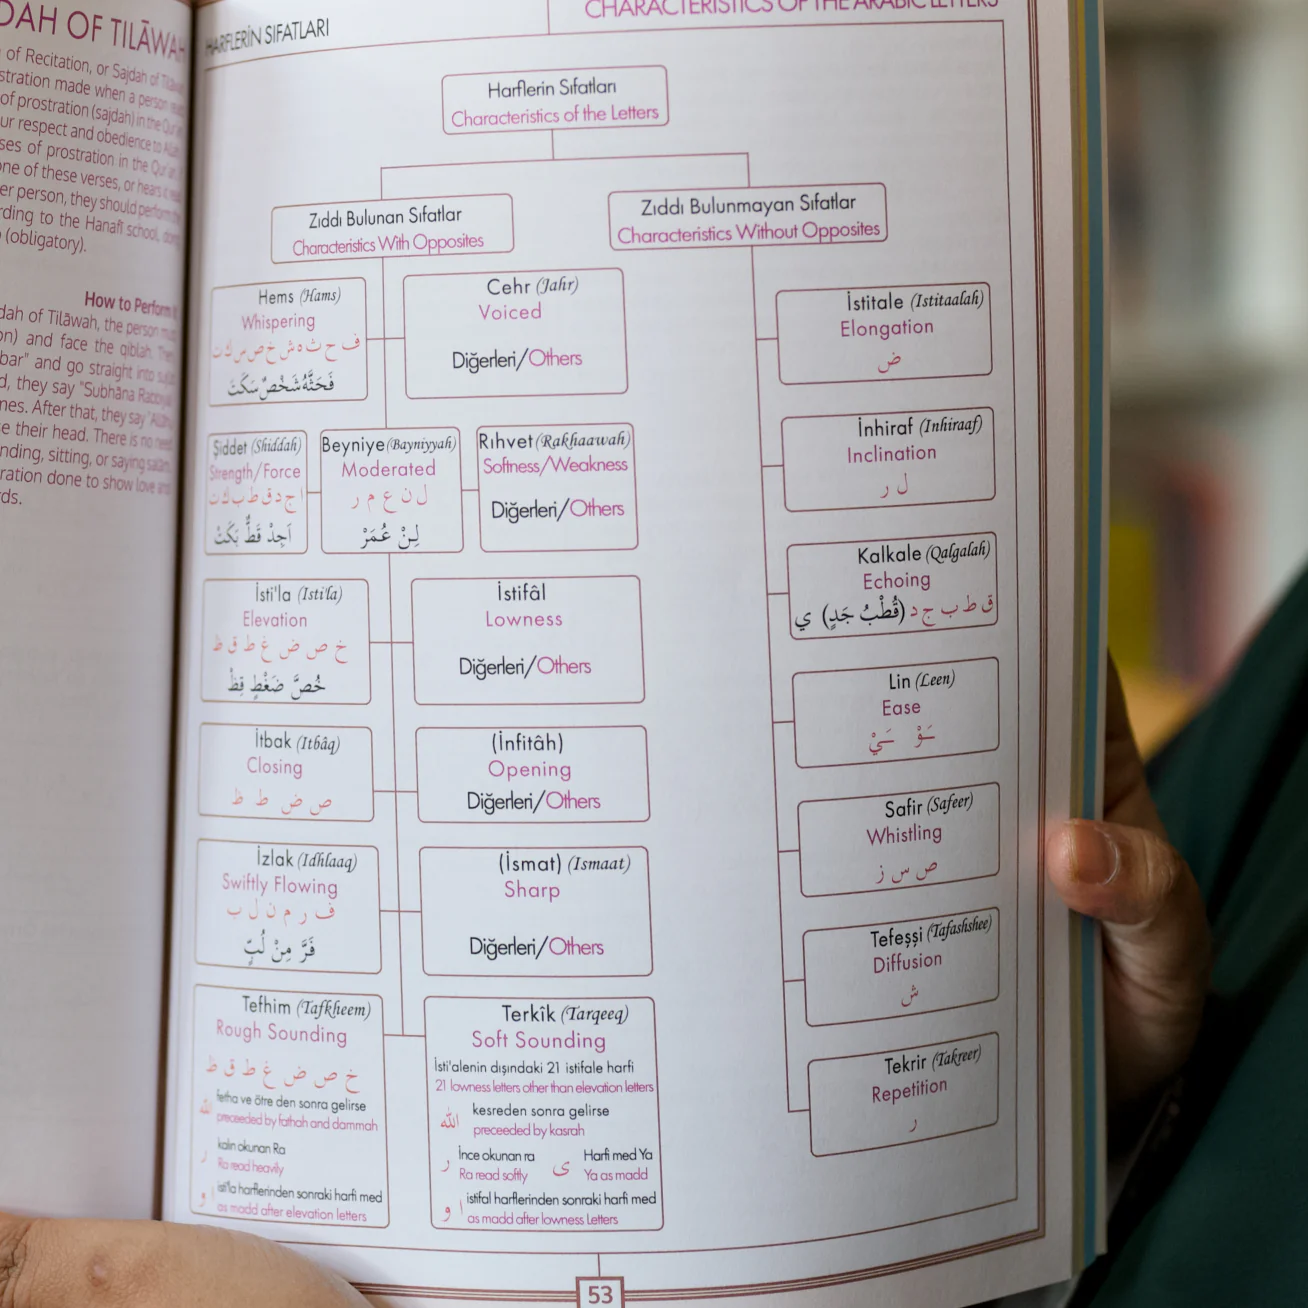 DAH OF TILĀWAH
of Recitation, or Sajdah of Tilāwa
stration made when a person
of prostration (sajdah) in the Qur'an
ur respect and obedience to Allah
ses of prostration in the Qur'an
one of these verses, or hears it
er person, they should perform
rding to the Hanafī school, doing
(obligatory).
How to Perform
dah of Tilāwah, the person must
on) and face the qiblah. Then
bar" and go straight into
d, they say "Subhāna Rabbiyal
mes. After that, they say "Allāhu
e their head. There is no need
nding, sitting, or saying salam
ration done to show love and
rds.
HARFLERİN SIFATLARI
CHARACTERISTICS OF THE ARABIC LETTERS
Harflerin Sıfatları
Characteristics of the Letters
Zıddı Bulunan Sıfatlar
Characteristics With Opposites
Zıddı Bulunmayan Sıfatlar
Characteristics Without Opposites
Hems (Hams)
Whispering
ف ح ث ه ش خ ص س ك ت
فَحَثَّهُ شَخْصٌ سَكَتَ
Cehr (Jahr)
Voiced
Diğerleri/Others
Şiddet (Shiddah)
Strength/Force
ا ج د ق ط ب ك ت
اَجِدْ قَطٍّ بَكَتْ
Beyniye (Bayniyyah)
Moderated
ل ن ع م ر
لِنْ عُمَرْ
Rıhvet (Rakhaawah)
Softness/Weakness
Diğerleri/Others
İsti'la (Isti'la)
Elevation
خ ص ض غ ط ق ظ
خُصَّ ضَغْطٍ قِظْ
İstifâl
Lowness
Diğerleri/Others
İtbak (Itbâq)
Closing
ص ض ط ظ
(İnfitâh)
Opening
Diğerleri/Others
İzlak (Idhlaaq)
Swiftly Flowing
ف ر م ن ل ب
فَرَّ مِنْ لُبٍّ
(İsmat) (Ismaat)
Sharp
Diğerleri/Others
Tefhim (Tafkheem)
Rough Sounding
خ ص ض غ ط ق ظ
fetha ve ötre den sonra gelirse
الله preceeded by fathah and dammah
kalın okunan Ra
ر Ra read heavily
isti'la harflerinden sonraki harfi med
ا و as madd after elevation letters
Terkîk (Tarqeeq)
Soft Sounding
İsti'alenin dışındaki 21 istifale harfi
21 lowness letters other than elevation letters
الله kesreden sonra gelirse
preceeded by kasrah
ر İnce okunan ra
Ra read softly
ى Harfi med Ya
Ya as madd
ا و istifal harflerinden sonraki harfi med
as madd after lowness Letters
İstitale (Istitaalah)
Elongation
ض
İnhiraf (Inhiraaf)
Inclination
ل ر
Kalkale (Qalqalah)
Echoing
ق ط ب ج د (قُطْبُ جَدٍ) ي
Lin (Leen)
Ease
ـَوْ ـَيْ
Safir (Safeer)
Whistling
ص س ز
Tefeşşi (Tafashshee)
Diffusion
ش
Tekrir (Takreer)
Repetition
ر
53